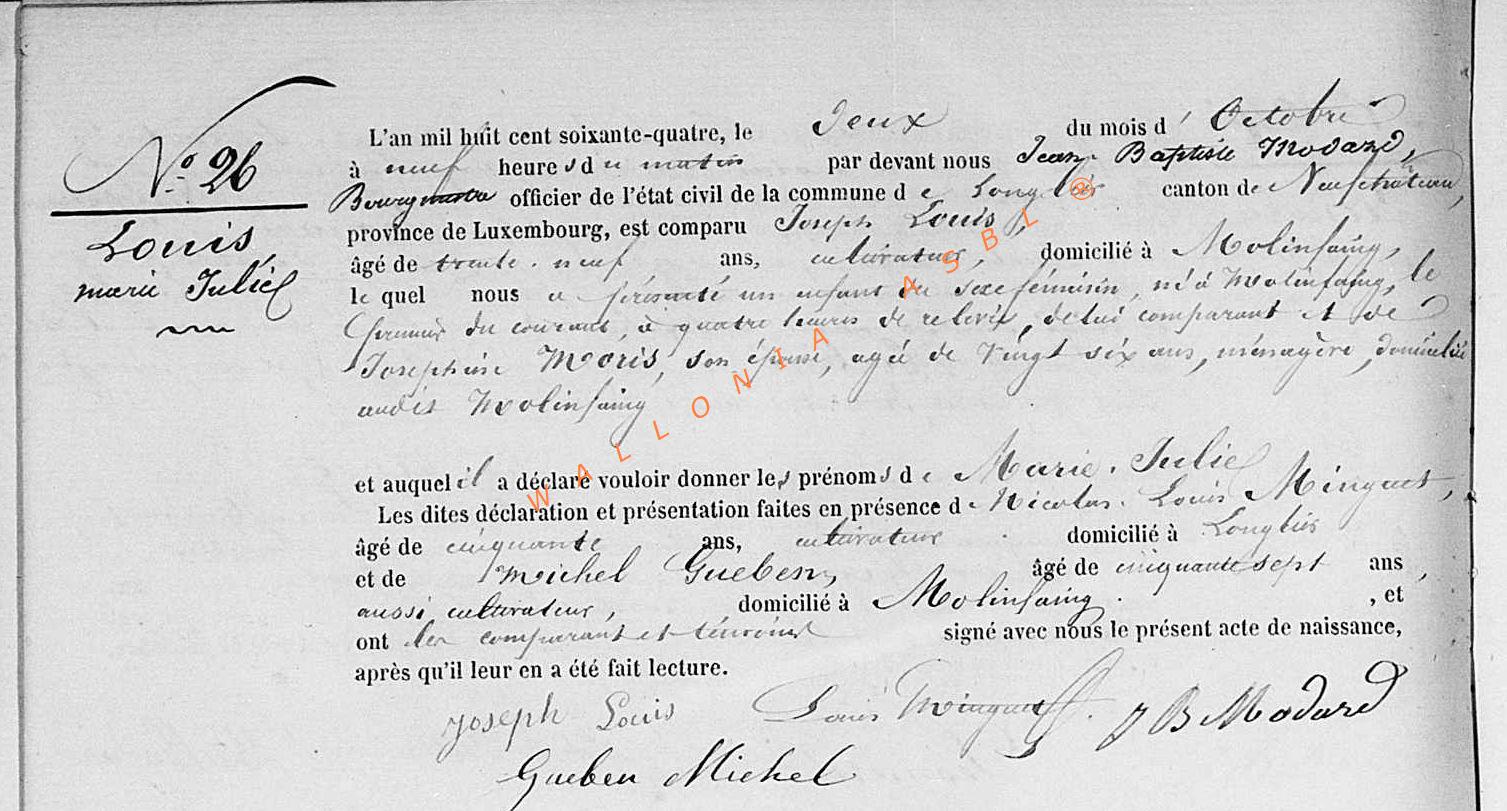 N.º 26
Louis,
marie Julie
L'an mil huit cent soixante-quatre, le deux du mois d' Octobre
à neuf heures du matin par devant nous Jean-Baptiste Modard,
Bourgmestre officier de l'état civil de la commune de Longlier canton de Neufchâteau,
province de Luxembourg, est comparu Joseph Louis,
âgé de trente-neuf ans, cultivateur, domicilié à Molinfaing,
lequel nous a présenté un enfant du sexe féminin, né à Molinfaing, le
premier du courant, à quatre heures de relevée, de lui comparant et de
Josephine Moris, son épouse, agée de vingt six ans, ménagère, domiciliée
audit Molinfaing
et auquel il a déclaré vouloir donner les prénoms de Marie-Julie
Les dites déclaration et présentation faites en présence de Nicolas-Louis Minguet,
âgé de cinquante ans, cultivateur domicilié à Longlier
et de Michel Gueben, âgé de cinquante sept ans,
aussi cultivateur, domicilié à Molinfaing. , et
ont les comparant et témoins signé avec nous le présent acte de naissance,
après qu'il leur en a été fait lecture.
Joseph Louis Louis Minguet. J B Modard
Gueben Michel
WALLONIA ASBL ®